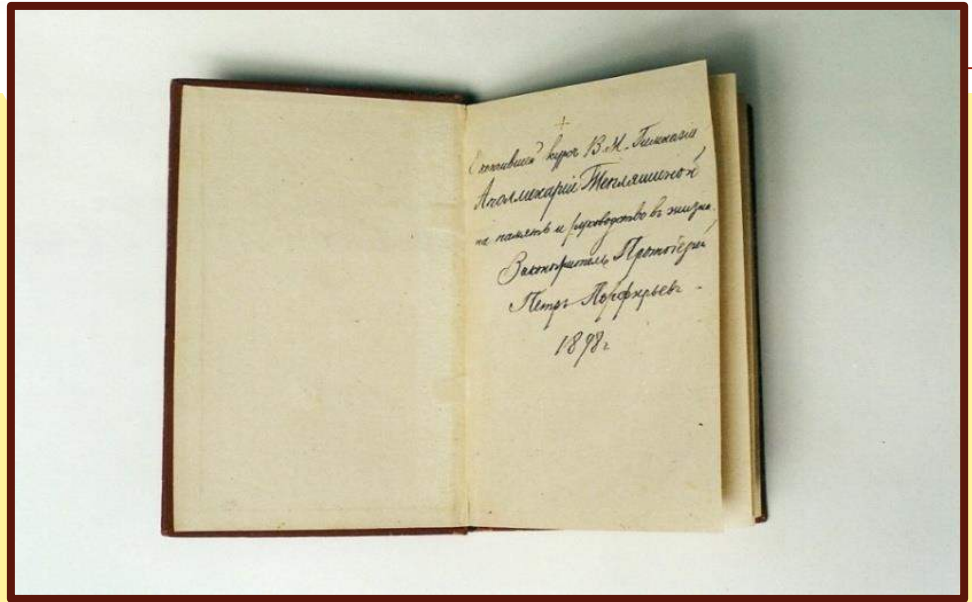 +
Окончившей курсъ В. М. Гимназіи
Аполлинаріи Тепляшиной
на память и руководство въ жизни.
Законоучитель, Протоіерей
Петръ Порфирьевъ.
1898 г.